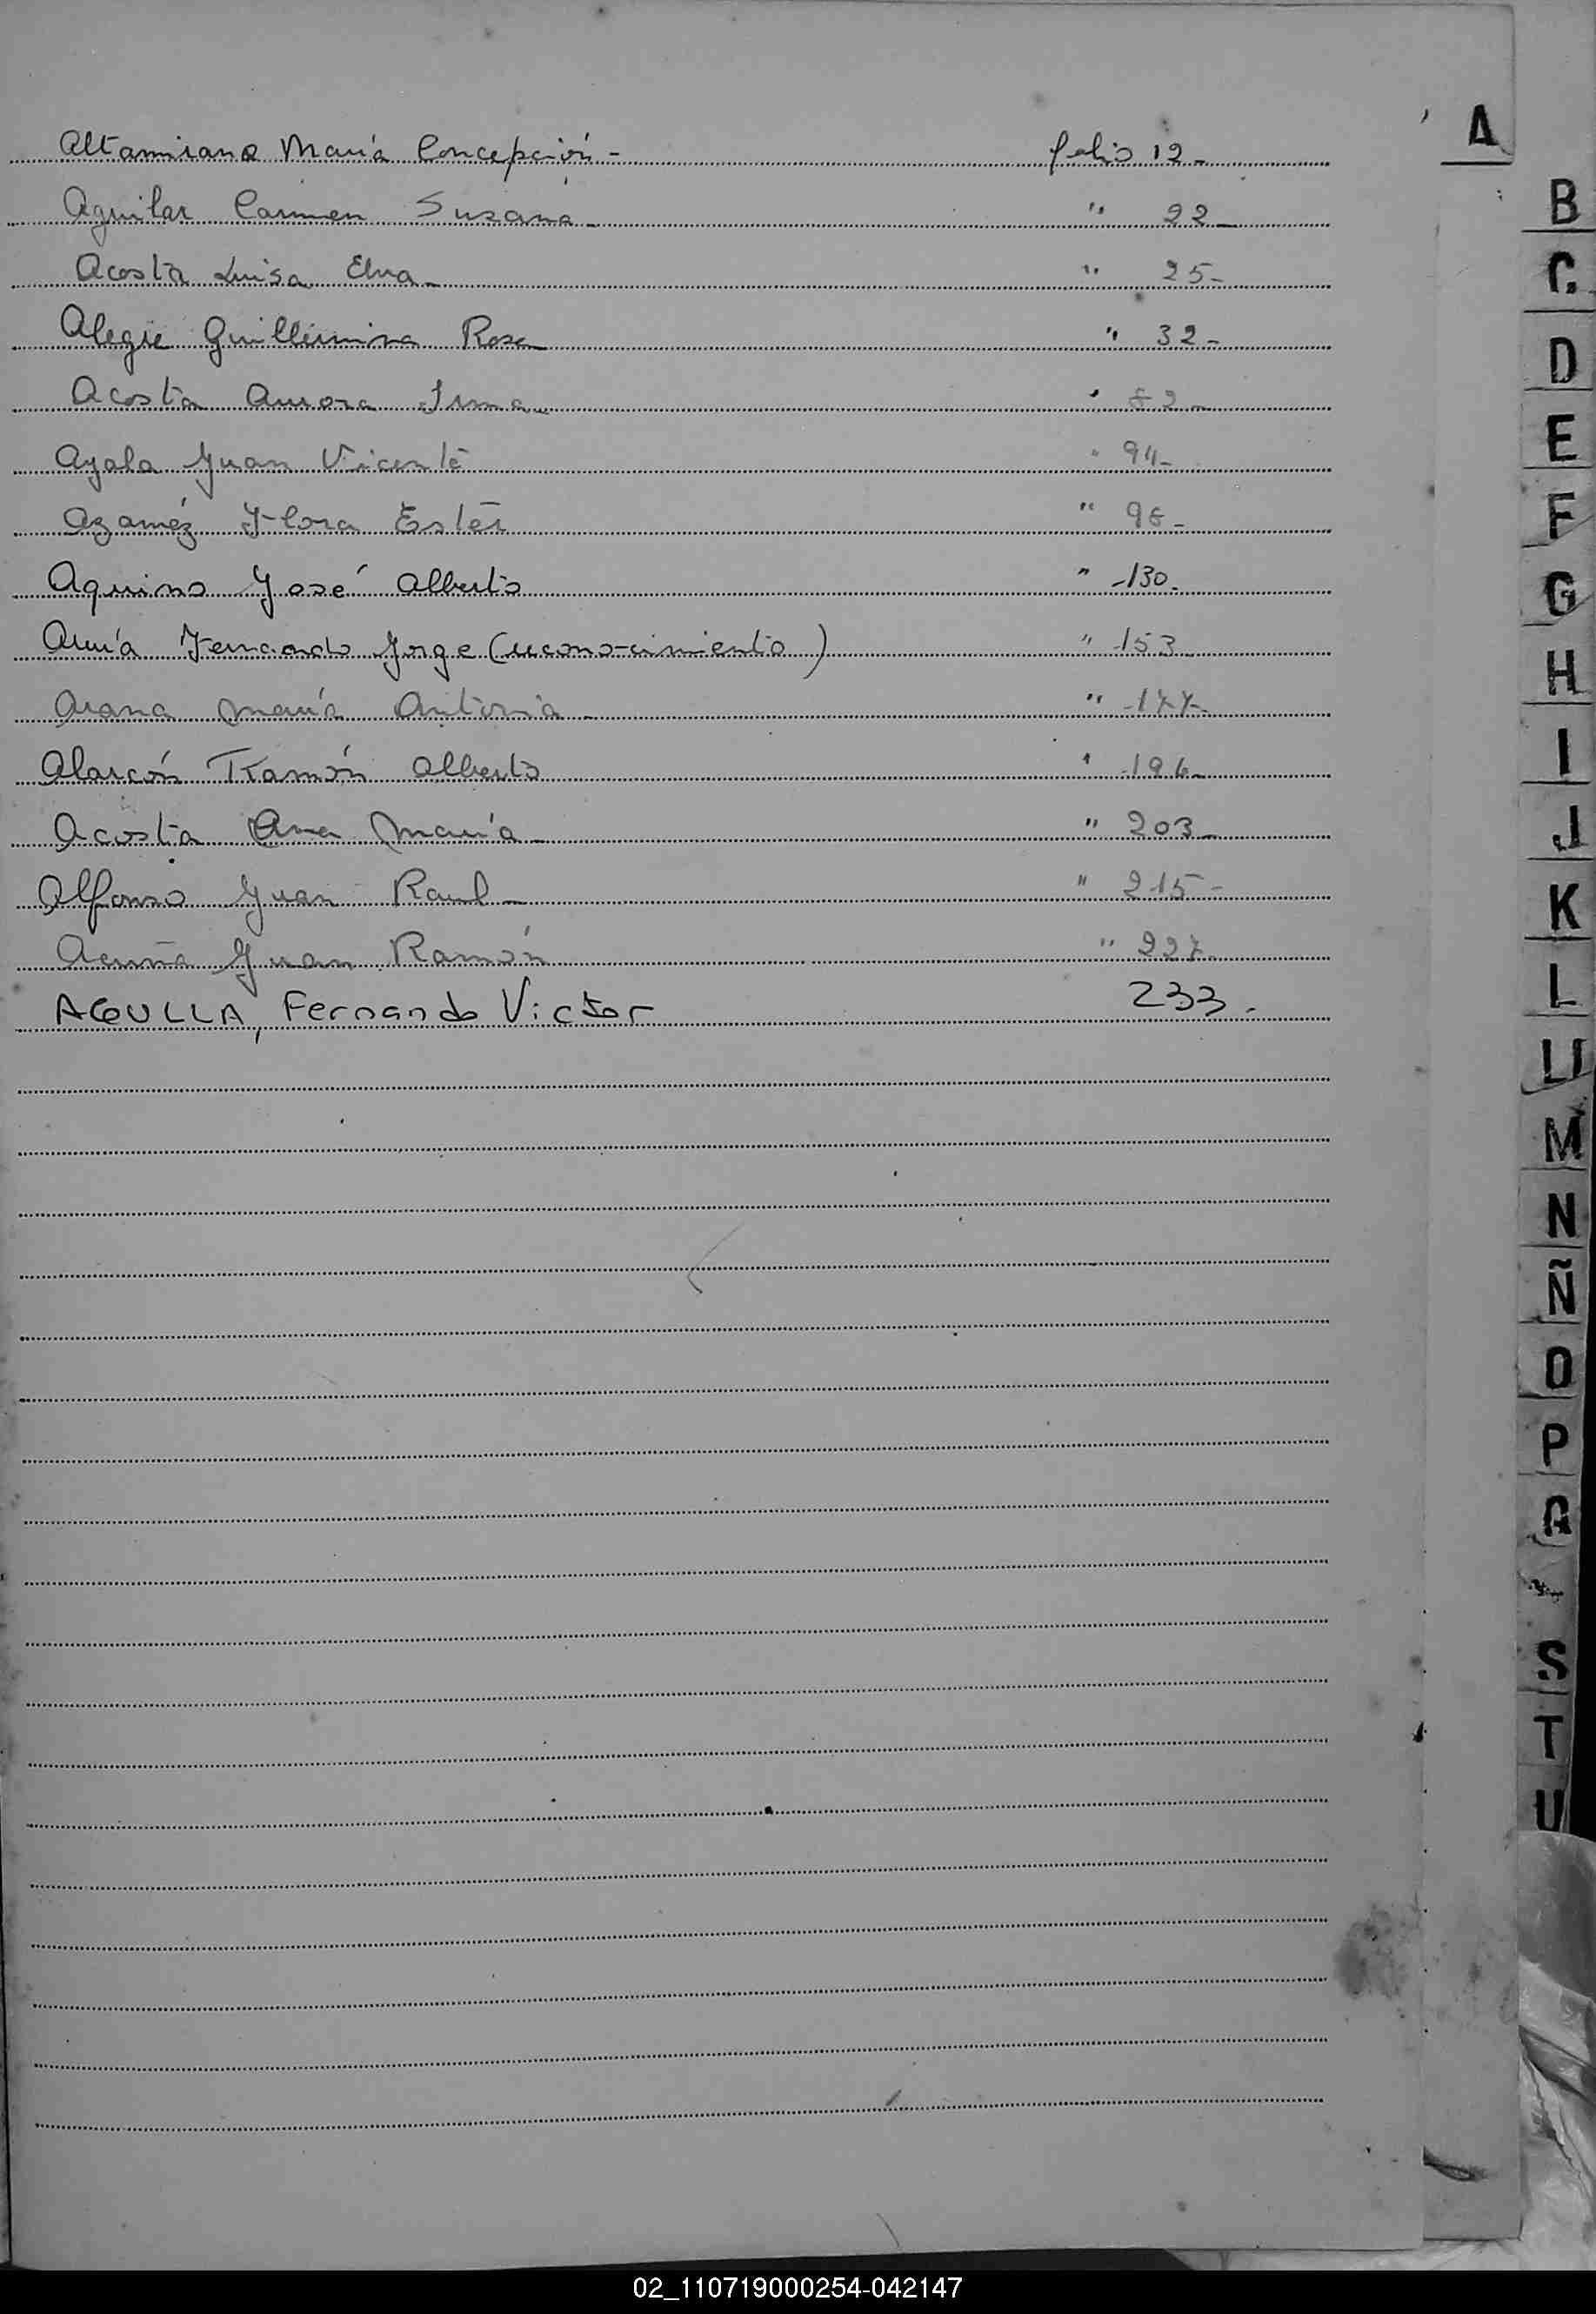 A
Altamirano María Concepción - folio 12 -
Aguilar Carmen Susana - " 22 -
Acosta Luisa Elva - " 25 -
Alegre Guillermina Rosa " 32 -
Acosta Aurora Irma - "
Ayala Juan Vicente " 94 -
Azaméz Flora Ester "
Aquino José Alberto " 130.
Fernando Jorge (reconocimiento) " 153
Arana María Antonia - " 177 -
Alarcón Ramón Alberto " 196 -
Acosta Ana María - " 203 -
Alfonso Juan Raul - " 215 -
Acuña Juan Ramón " 227.
AGULLA, Fernando Victor 233.
B
C
D
E
F
G
H
I
J
K
L
M
N
Ñ
O
P
Q
S
T
U
02_110719000254-042147